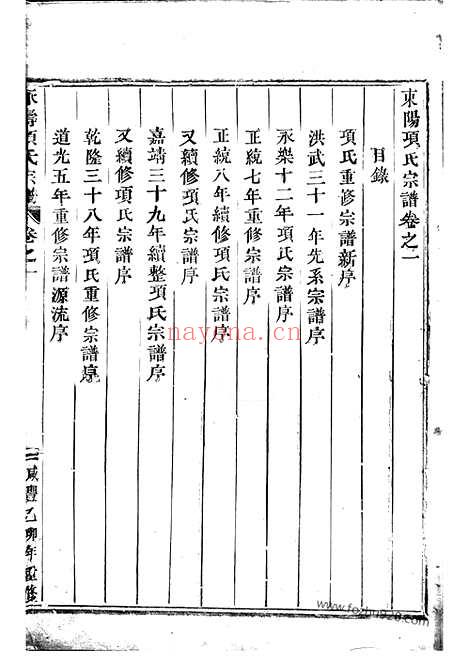 東陽項氏宗譜卷之一
目錄
項氏重修宗譜新序
洪武三十一年先系宗譜序
永樂十二年項氏宗譜序
正統七年重修宗譜序
正統八年續修項氏宗譜序
又續修項氏宗譜序
嘉靖三十九年續整項氏宗譜序
又續修項氏宗譜序
乾隆三十八年項氏重修宗譜序
道光五年重修宗譜源流序
項氏宗譜 卷之一 一 咸豐乙卯年重修
nayona.cn
www.fozhu920.com